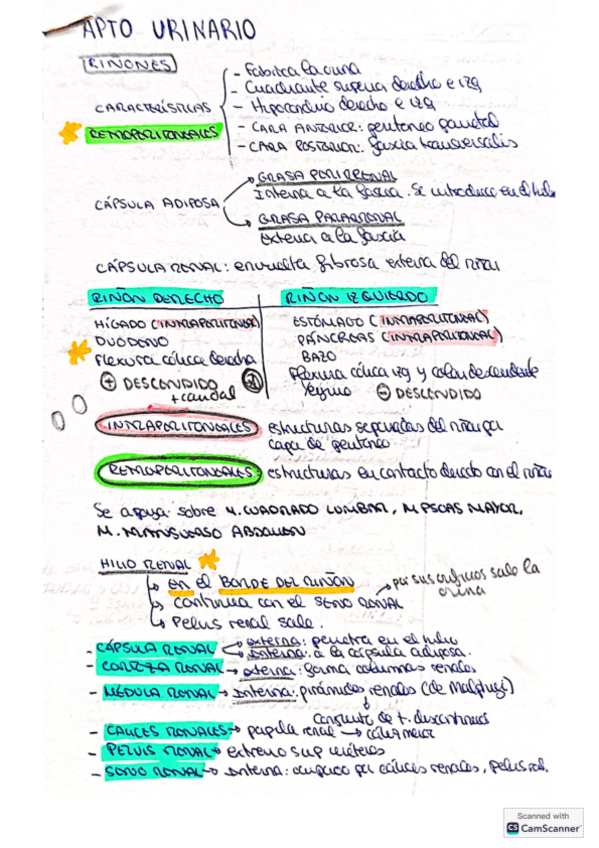 APTO URINARIO
RIÑONES
CARACTERÍSTICAS
RETROPERITONEALES
- Fabrica la orina
- Cuadrante superior derecho e izq
- Hipocondrio derecho e izq
- CARA ANTERIOR: peritoneo parietal
- CARA POSTERIOR: fascia transversalis
CÁPSULA ADIPOSA
GRASA PERIRRENAL
Interna a la fascia. Se introduce en el hilio
GRASA PARARRENAL
Externa a la fascia
CÁPSULA RENAL: envuelta fibrosa externa del riñón
RIÑÓN DERECHO
RIÑÓN IZQUIERDO
HÍGADO (INTRAPERITONEAL)
DUODENO
Flexura cólica derecha
+ DESCENDIDO
+ caudal
ESTÓMAGO (INTRAPERITONEAL)
PÁNCREAS (INTRAPERITONEAL)
BAZO
Flexura cólica izq y colon descendente
Yeyuno
- DESCENDIDO
INTRAPERITONEALES: estructuras separadas del riñón por
capa de peritoneo
RETROPERITONEALES: estructuras en contacto directo con el riñón
Se apoya sobre M. CUADRADO LUMBAR, M PSOAS MAYOR,
M. TRANSVERSO ABDOMEN
HILIO RENAL
EN el BORDE DEL RIÑÓN
Continua con el SENO RENAL
por sus orificios sale la
orina
Pelvis renal sale.
- CÁPSULA RENAL
externa: penetra en el hilio
Interna: a la cápsula adiposa.
- CORTEZA RENAL → externa: forma columnas renales
- MÉDULA RENAL → Interna: pirámides renales (de Malpighi)
- CÁLICES RENALES → papila renal → cáliz menor
- PELVIS RENAL → extremo sup uréteres
- SENO RENAL → Interna: ocupado por cálices renales, pelvis
Scanned with
CS CamScanner